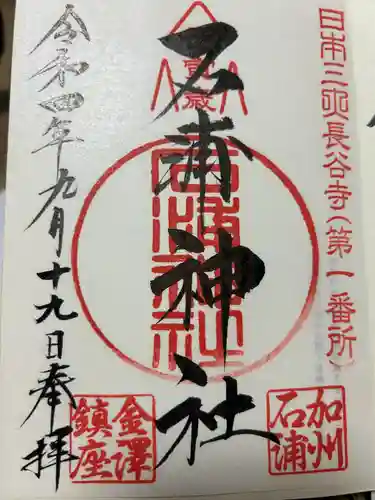 日本三大長谷寺(第一番所)
加州
石浦
石浦神社
令和四年九月十九日奉拝
金澤
鎮座